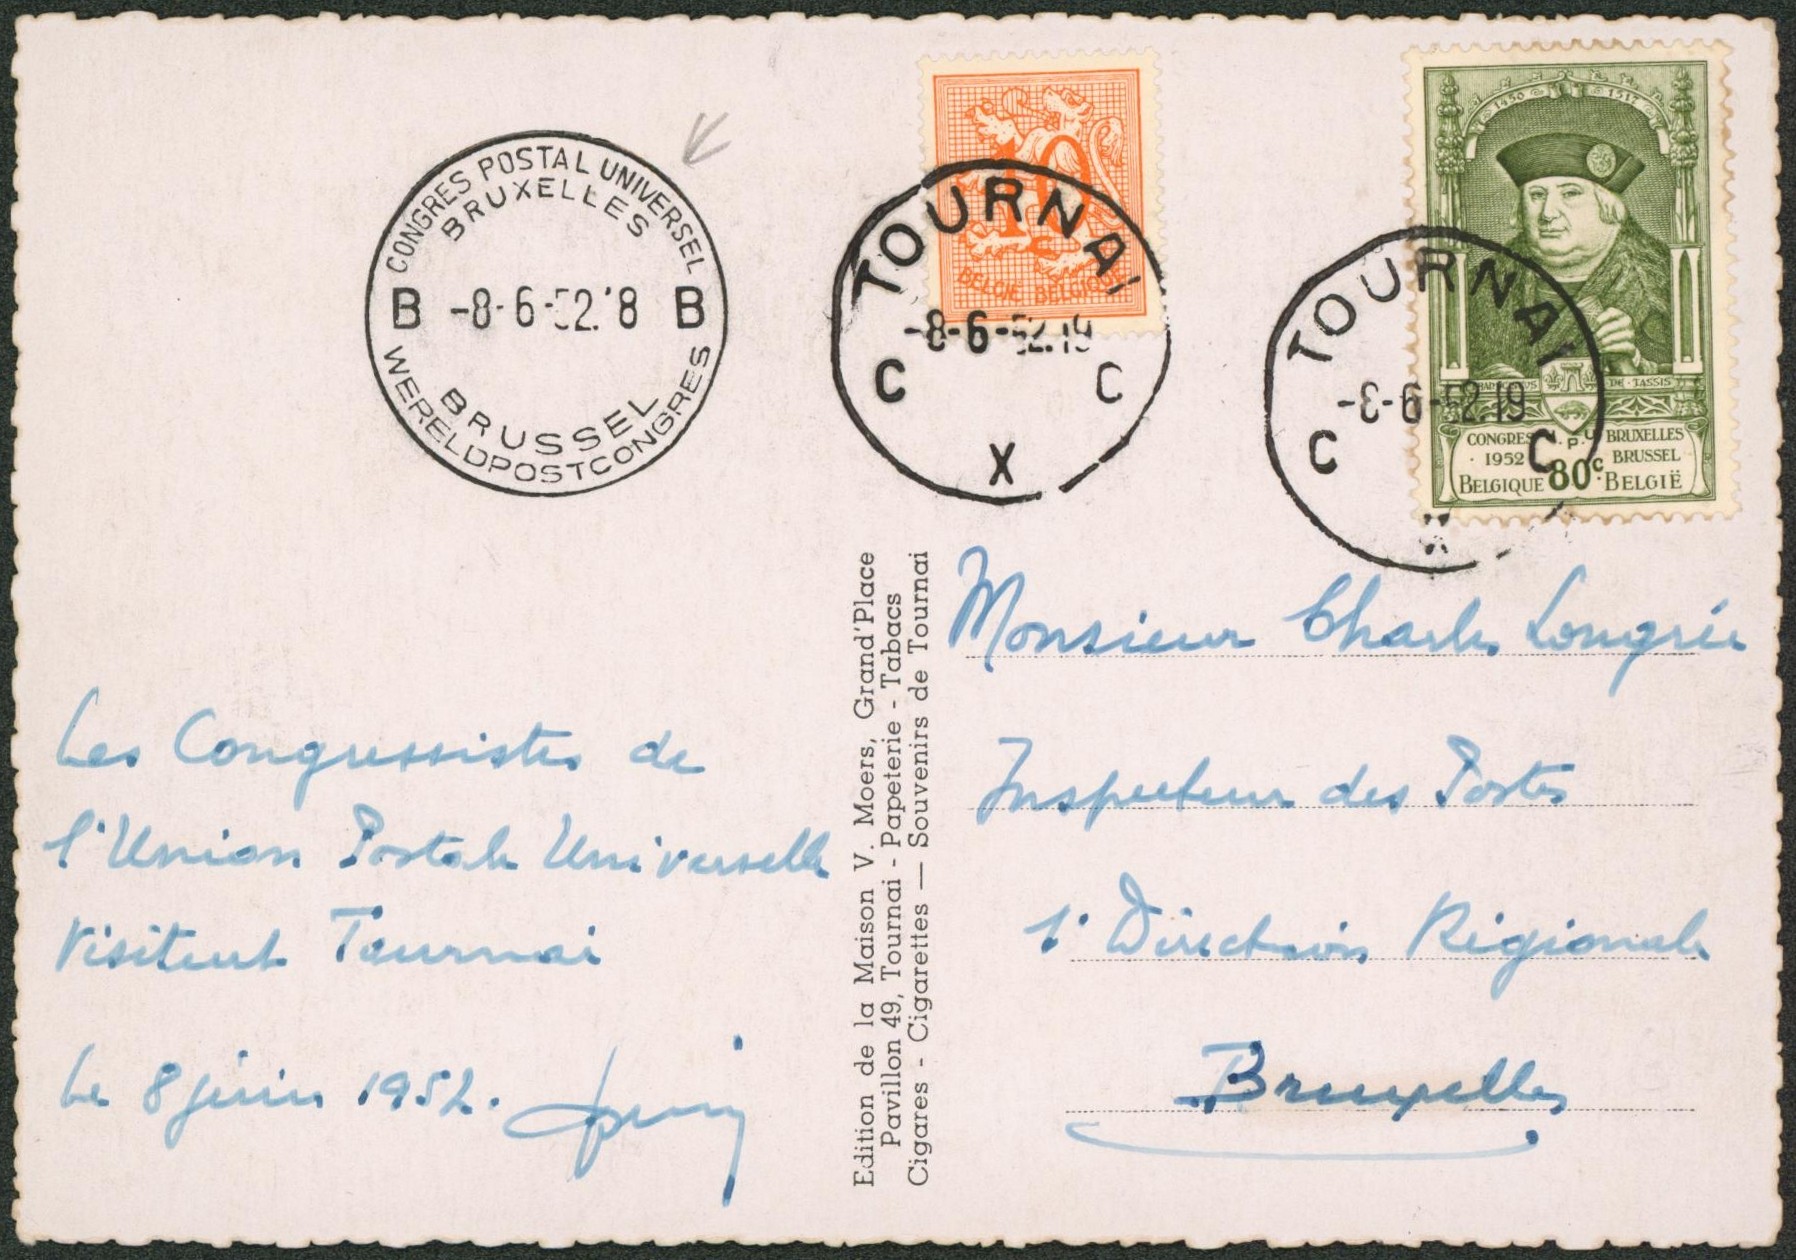 CONGRES POSTAL UNIVERSEL
BRUXELLES
B -8-6-52.18 B
BRUSSEL
WERELDPOSTCONGRES
10
c
BELGIE BELGIQUE
TOURNAI
-8-6-52.19
C C
X
1450 1517
DE TASSIS
CONGRES U.P.U BRUXELLES
1952 BRUSSEL
BELGIQUE 80c BELGIË
TOURNAI
-8-6-52.19
C C
X
Les Congressistes de
l'Union Postale Universelle
visitent Tournai
Le 8 juin 1952.
Edition de la Maison V. Moers, Grand'Place
Pavillon 49, Tournai - Papeterie - Tabacs
Cigares - Cigarettes — Souvenirs de Tournai
Monsieur Charles Longrée
Inspecteur des Postes
1e Direction Régionale
Bruxelles